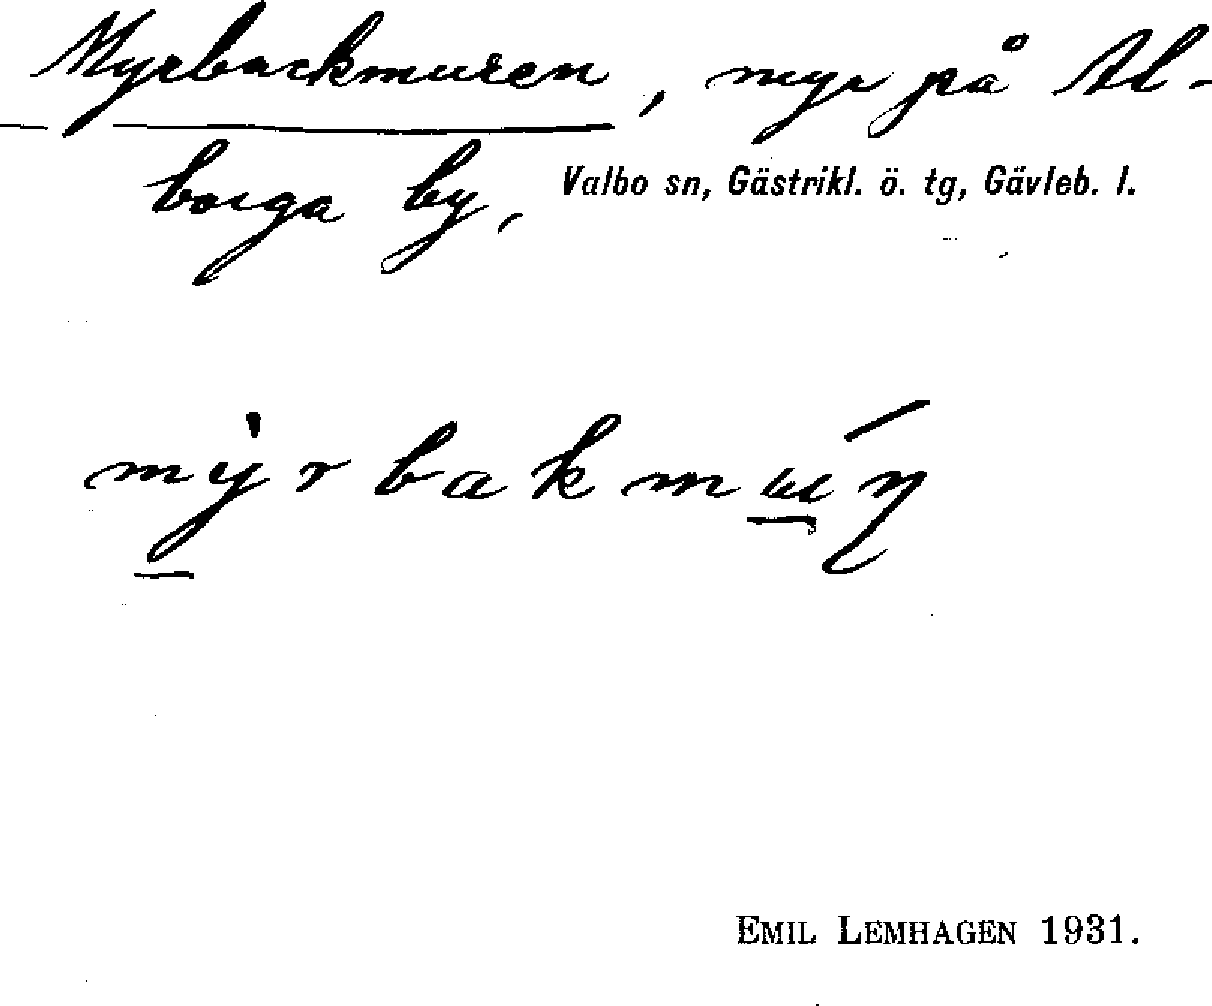 Myrbackmuren, myr på Al-
borga by, Valbo sn, Gästrikl. ö. tg, Gävleb. l.
myrbakmuŋ
EMIL LEMHAGEN 1931.